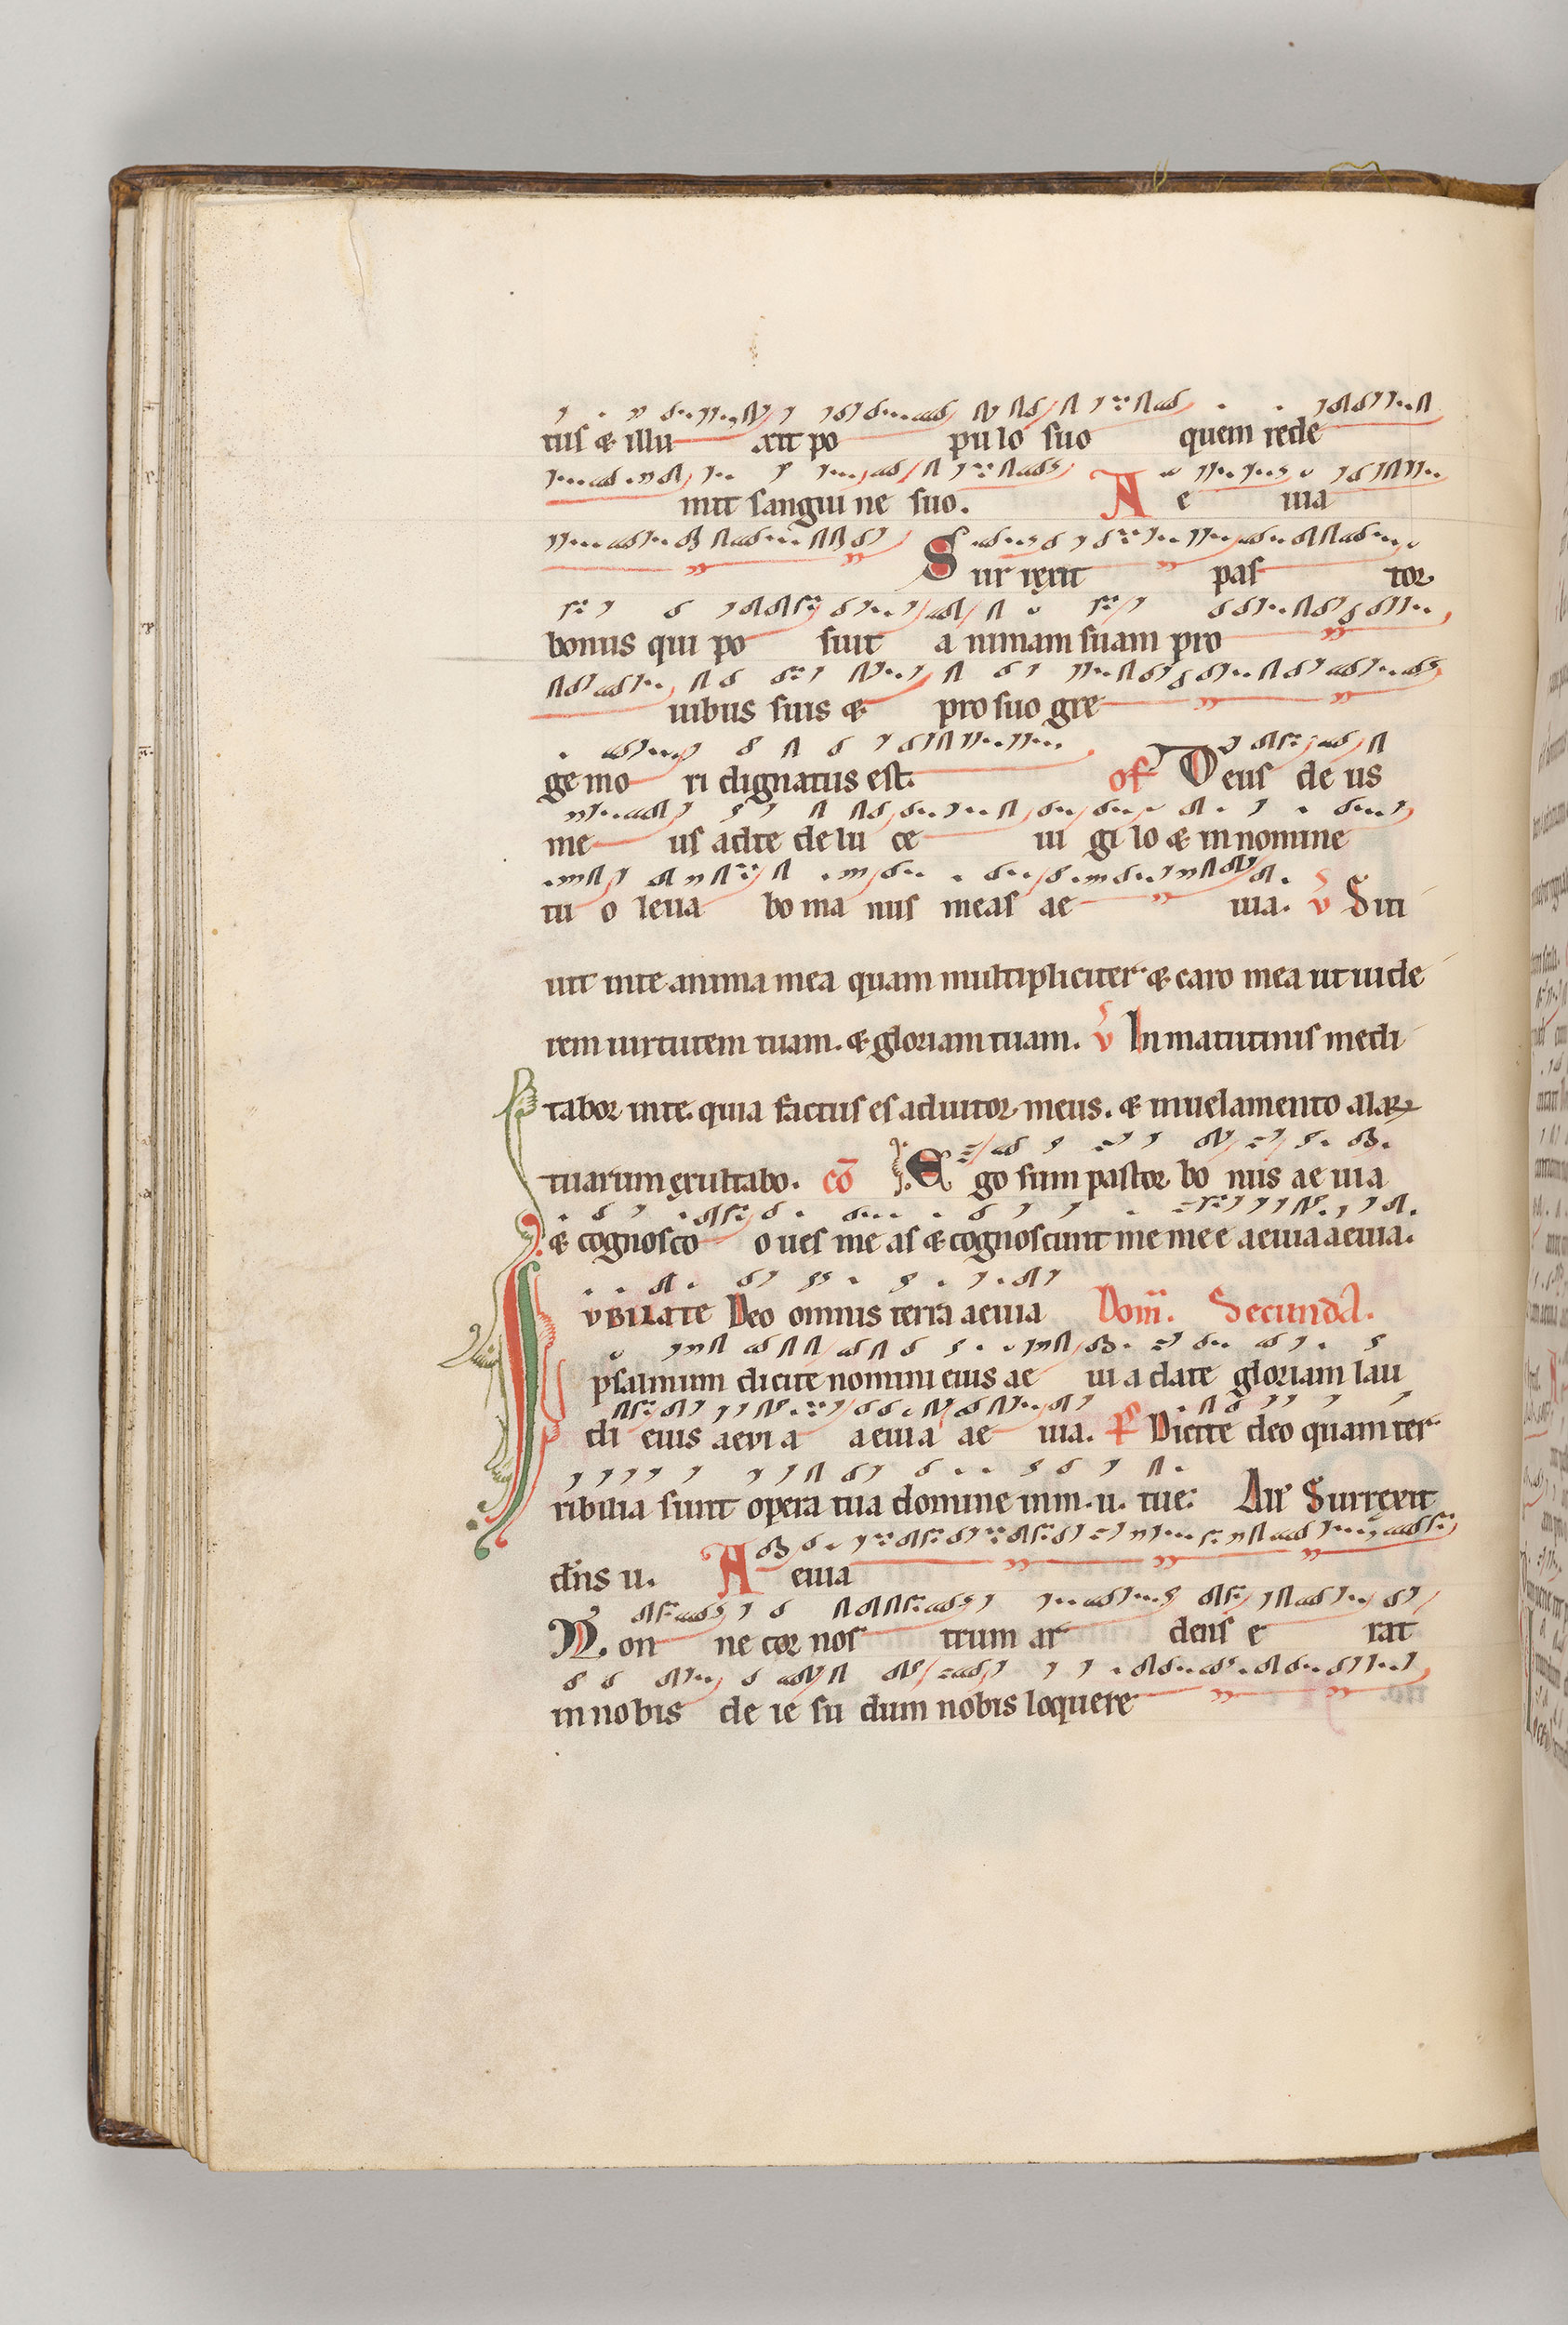 tus & illu xit po pulo suo quem rede
mit sangui ne suo. A e uia
Sur rexit pas tor
bonus qui po suit a nimam suam pro
uibus suis & pro suo gre
ge mo ri dignatus est. of Deus de us
me us adte de lu ce ui gi lo & in nomine
tu o leua bo ma nus meas ae uia. v Siti
uit inte anima mea quam multipliciter & caro mea ut uide
rem uirtutem tuam. & gloriam tuam. v In matutinis medi
tabor inte. quia factus es adiutor meus. & inuelamento alaꝝ
tuarum exultabo. co Ego sum pastor bo nus ae uia
& cognosco o ues me as & cognoscunt me mee aeuia aeuia.
IVBILate Deo omnis terra aeuia Dom̄. Secunda.
psalmum dicite nomini eius ae ui a date gloriam lau
di eius aevi a aeuia ae uia. Ps Dicite deo quam ter
ribilia sunt opera tua domine inm. u. tue. All Surrexit
dn̄s u. A euia
Non ne cor nos trum ar dens e rat
in nobis de ie su dum nobis loquere